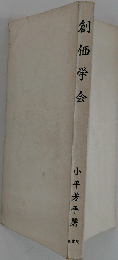 創価学会
小平芳平著